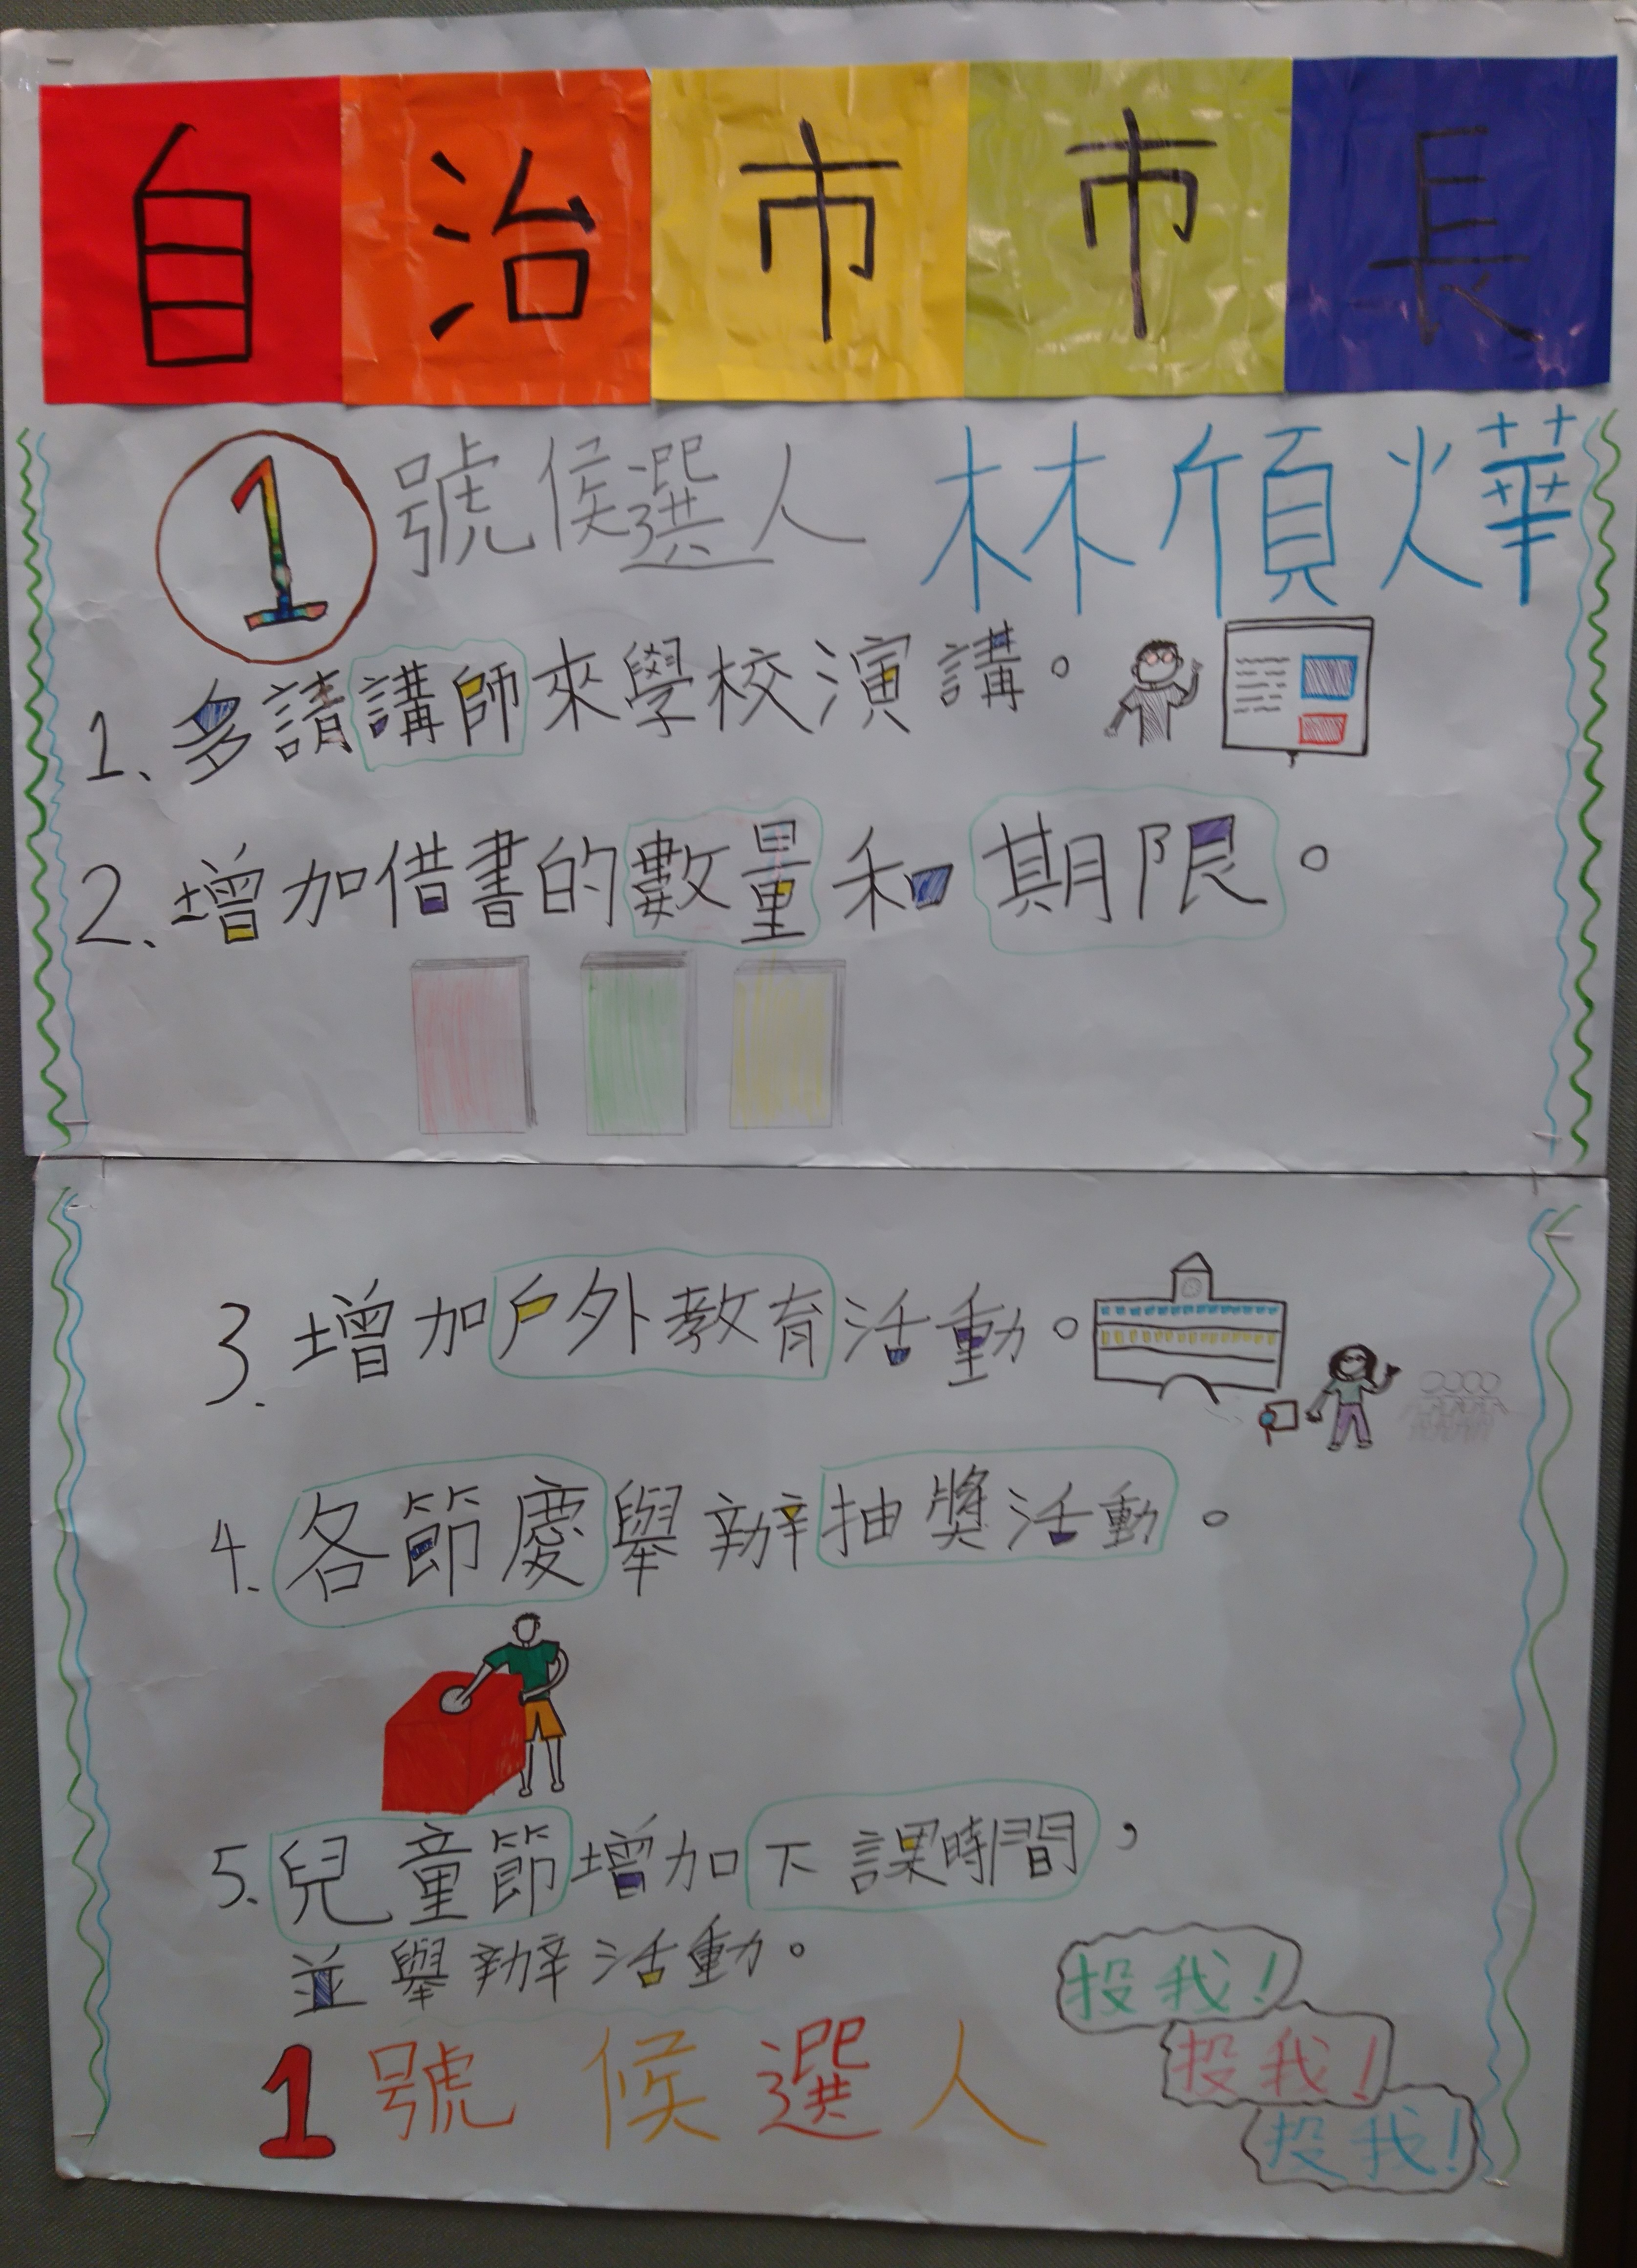 自治市市長
1號候選人 林頎燁
1、多請講師來學校演講。
2、增加借書的數量和期限。
3.增加戶外教育活動。
4.各節慶舉辦抽獎活動。
5.兒童節增加下課時間，
並舉辦活動。
1號候選人
投我！
投我！
投我！